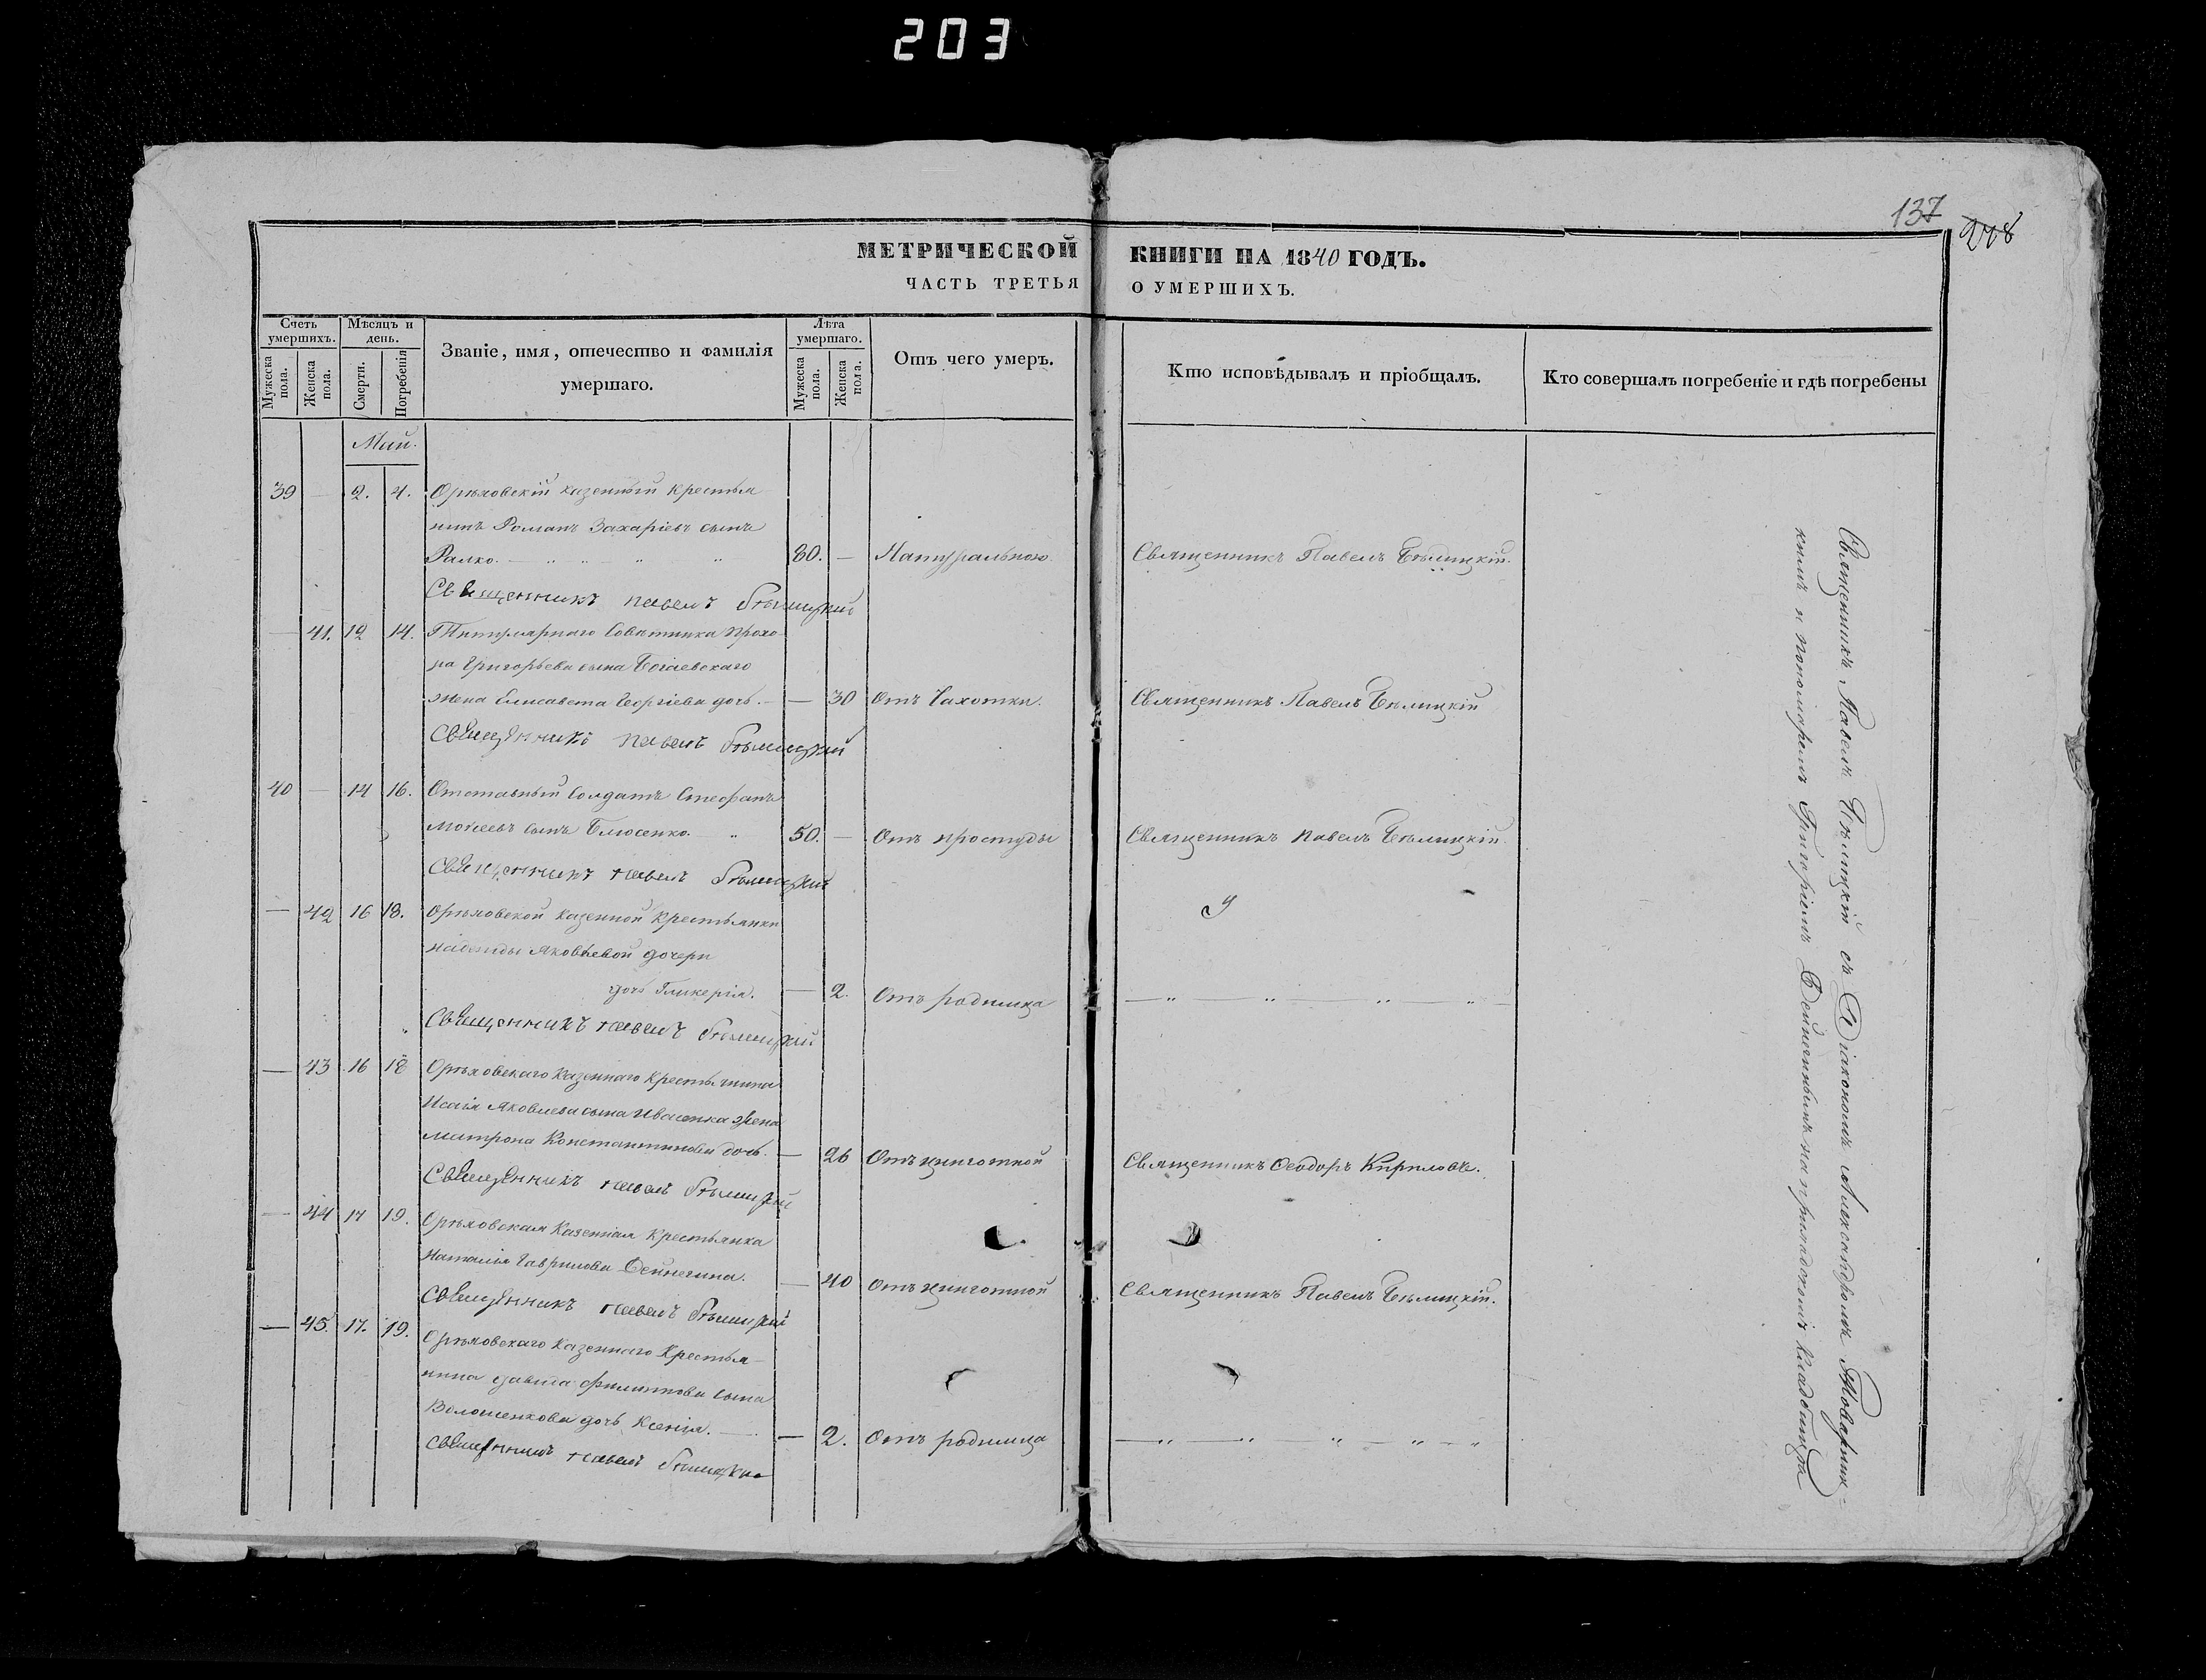 203
137
218
МЕТРИЧЕСКОЙ КНИГИ НА 1840 ГОДЪ.
ЧАСТЬ ТРЕТЬЯ О УМЕРШИХЪ.
Счетъ умершихъ.
Мужеска пола.
Женска пола.
Мѣсяцъ и день.
Смерти.
Погребенія
Званіе, имя, отечество и фамилія умершаго.
Лѣта умершаго.
Мужеска пола.
Женска пола.
Отъ чего умеръ.
Кто исповѣдывалъ и пріобщалъ.
Кто совершалъ погребеніе и гдѣ погребены
Май.
39 — 2. 4. Орѣховскій казенный крестья
нинъ Романъ Захаріевъ сынъ
Ралко. 80. — Натуральною. Священникъ Павелъ Бѣлицкій.
Священникъ павелъ бѣлицкій
— 41. 12 14. Титулярнаго Совѣтника Прохо-
ра Григорьева сына Богаевскаго
жена Елисавета Георгіева дочь. — 30 Отъ Чахотки. Священникъ Павелъ Бѣлицкій
Священникъ павелъ бѣлицкій
40 — 14 16. Отставный Солдатъ Стефанъ
Моѵсеевъ сынъ Блюсенко. 50. — Отъ простуды Священникъ Павелъ Бѣлицкій.
Священникъ павелъ бѣлицкій
— 42 16 18. Орѣховской казенной Крестьянки
Надежды Яковлевой дочери
дочь Гликерія. — 2. Отъ родимца
Священникъ павелъ бѣлицкій
— 43 16 18 Орѣховскаго Казеннаго Крестьянина
Исаія Яковлева сына Иваненка жена
Митрона Константинова дочь. — 26 Отъ цынготной Священникъ Ѳеодоръ Кириловъ.
Священникъ павелъ бѣлицкій
— 44 17 19. Орѣховская Казенная Крестьянка
Наталія Гаврилова Дейнегина. — 40 Отъ цынготной Священникъ Павелъ Бѣлицкій.
Священникъ павелъ бѣлицкій
— 45. 17. 19. Орѣховскаго Казеннаго Крестья-
нина Давида Филиппова сына
Волошенкова дочь Ксенія. — 2. Отъ родимца
Священникъ павелъ бѣлицкій
Священникъ Павелъ Бѣлицкій съ Діакономъ Александромъ Товарниц-
кимъ и пономаремъ Григоріемъ Дейнекинымъ на приходскомъ кладбищѣ